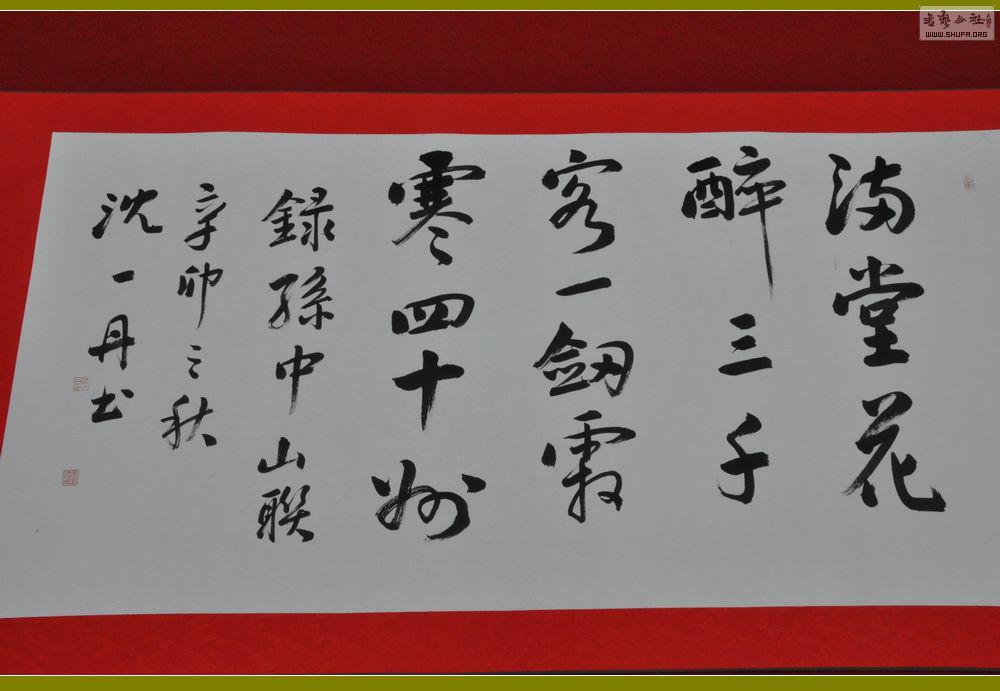 满堂花
醉三千
客一劔霜
寒四十州
録孫中山聯
辛卯之秋
沈一丹书
书艺公社
WWW.SHUFA.ORG